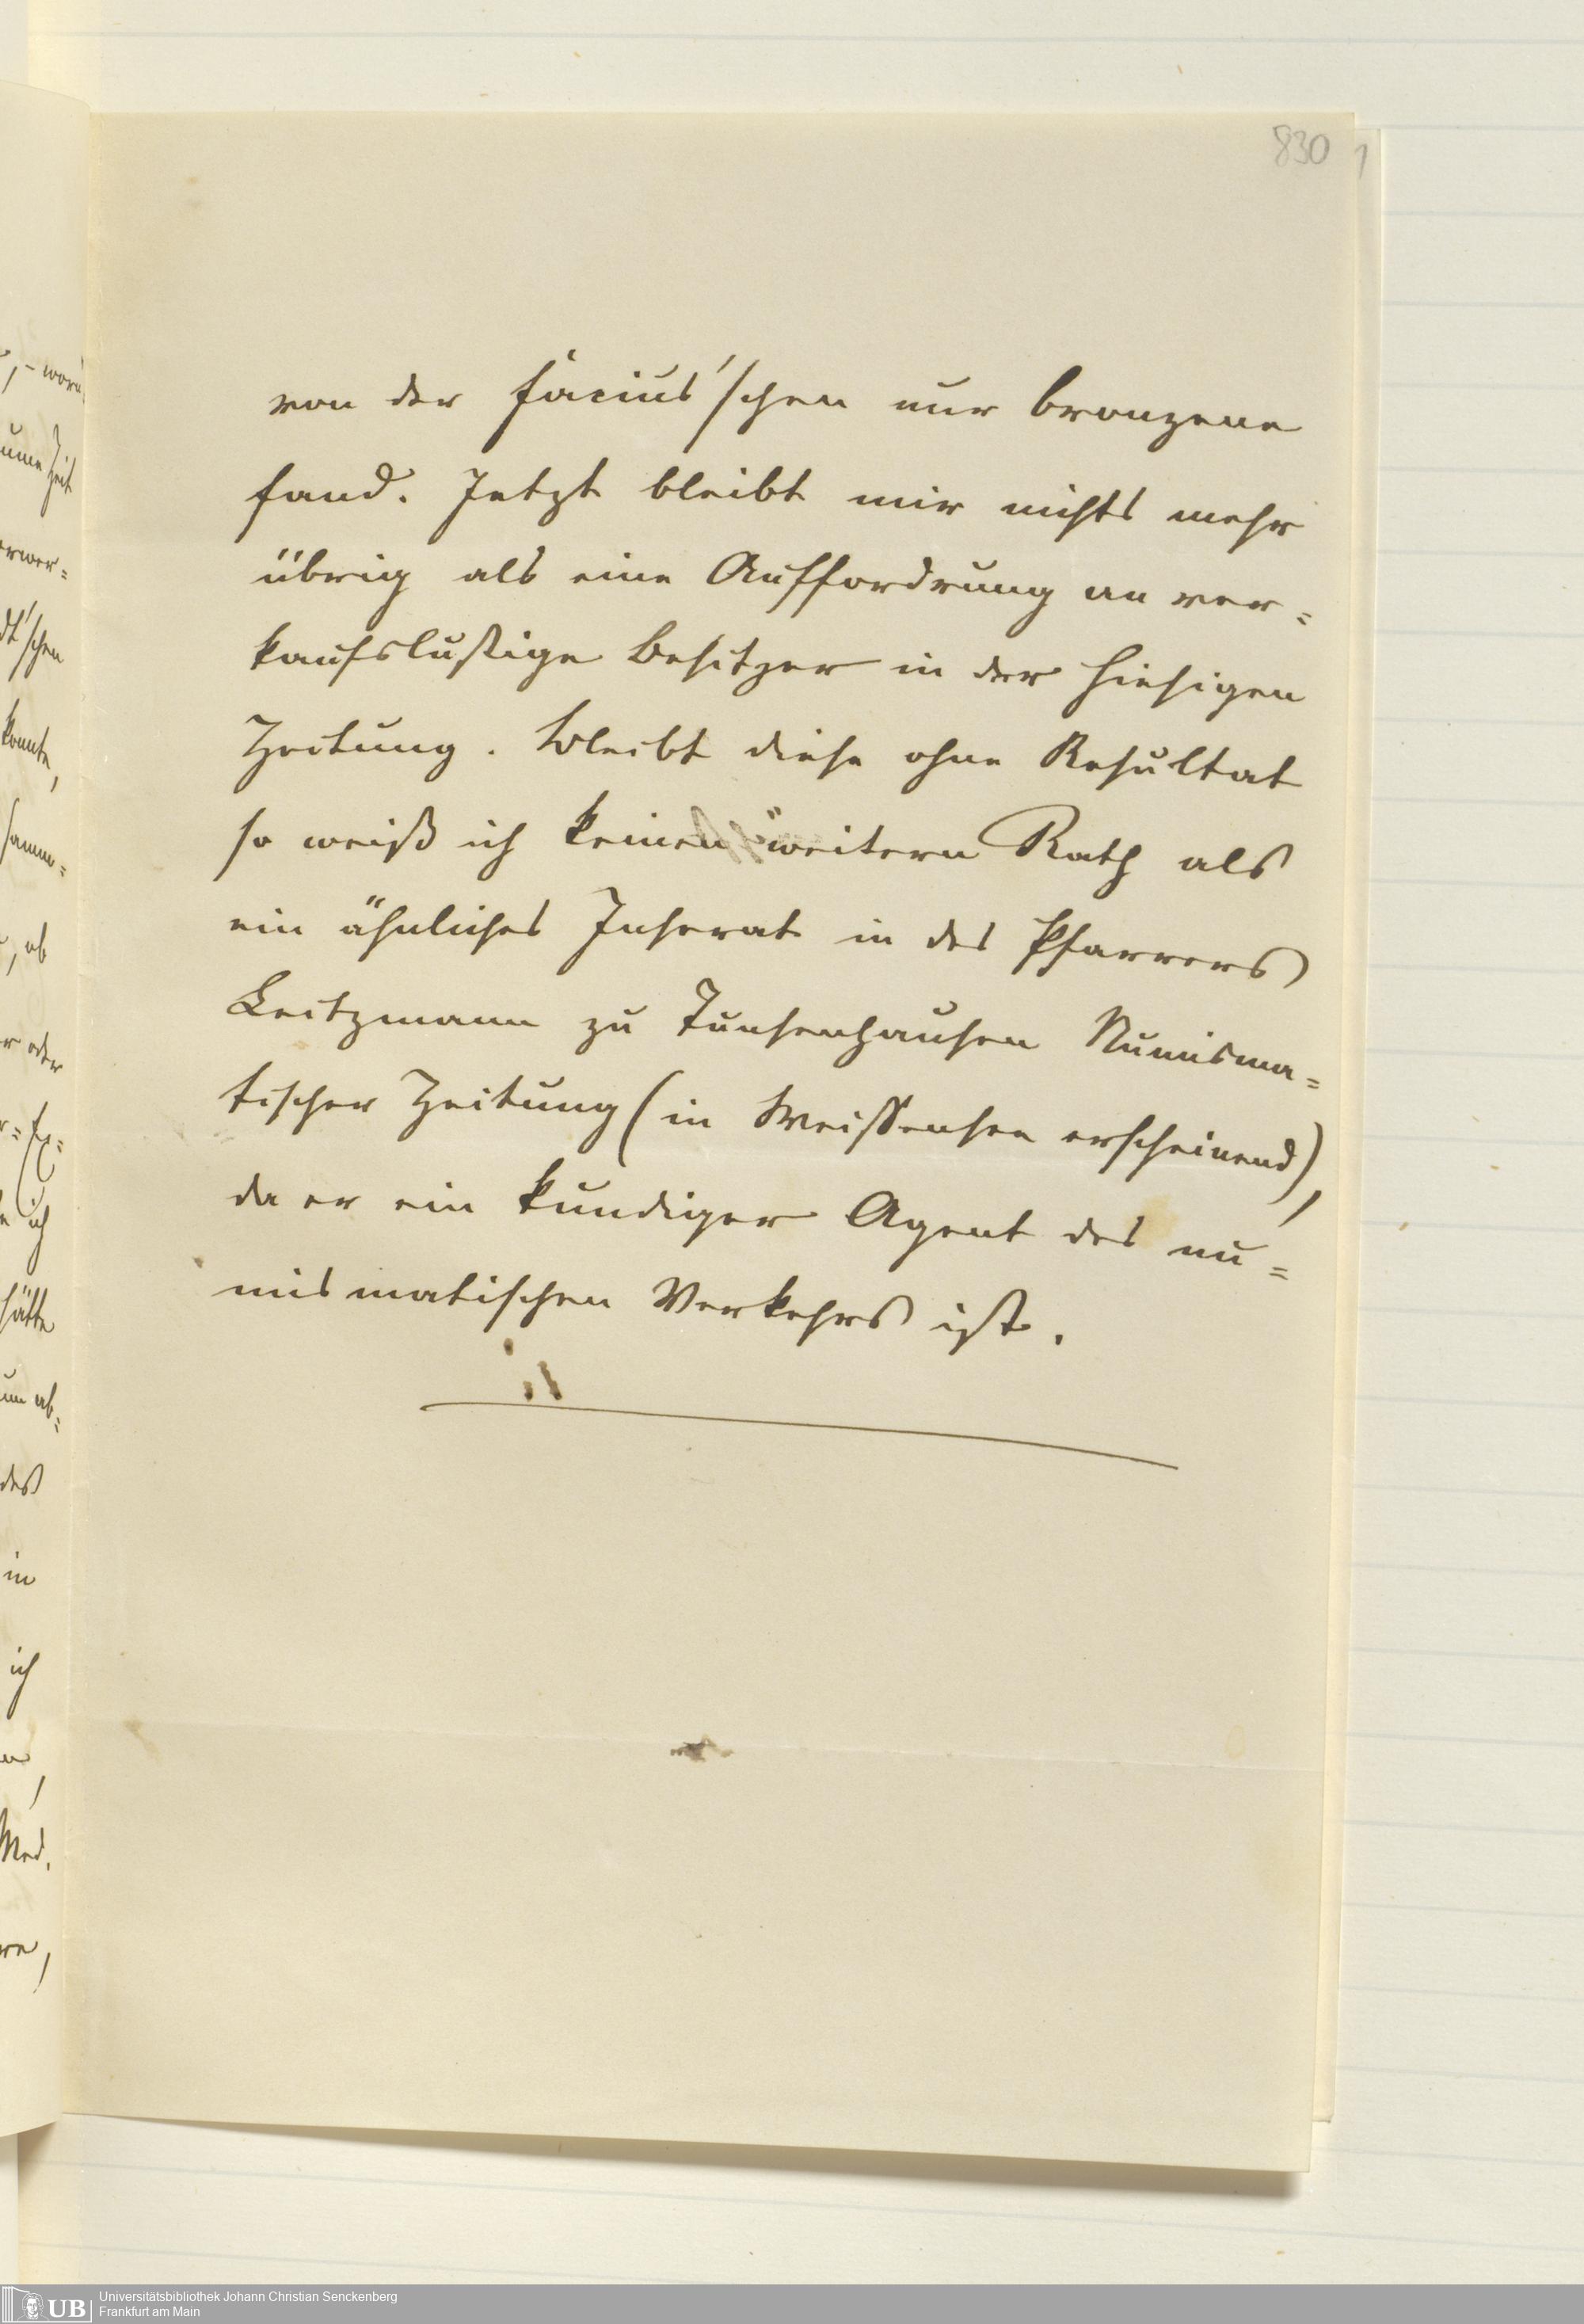 830 1
von der Facius'schen nur bronzene
fand. Jetzt bleibt mir nichts mehr
übrig als eine Auffordrung an ver=
kaufslustige Besitzer in der hiesigen
Zeitung. Bleibt diese ohne Resultat
so weiß ich keinen weitern Rath als
ein ähnliches Inserat in des Pfarrers
Leitzmann zu Tunsenhausen Numisma=
tischer Zeitung (in Weissensee erscheinend),
da er ein kundiger Agent des nu=
mismatischen Verkehrs ist.
ume Zeit
erwer=
dt'schen
konnte,
samm=
, ob
r oder
ich
hätte
um ab=
des
in
ich
Med.
UB
Universitätsbibliothek Johann Christian Senckenberg
Frankfurt am Main